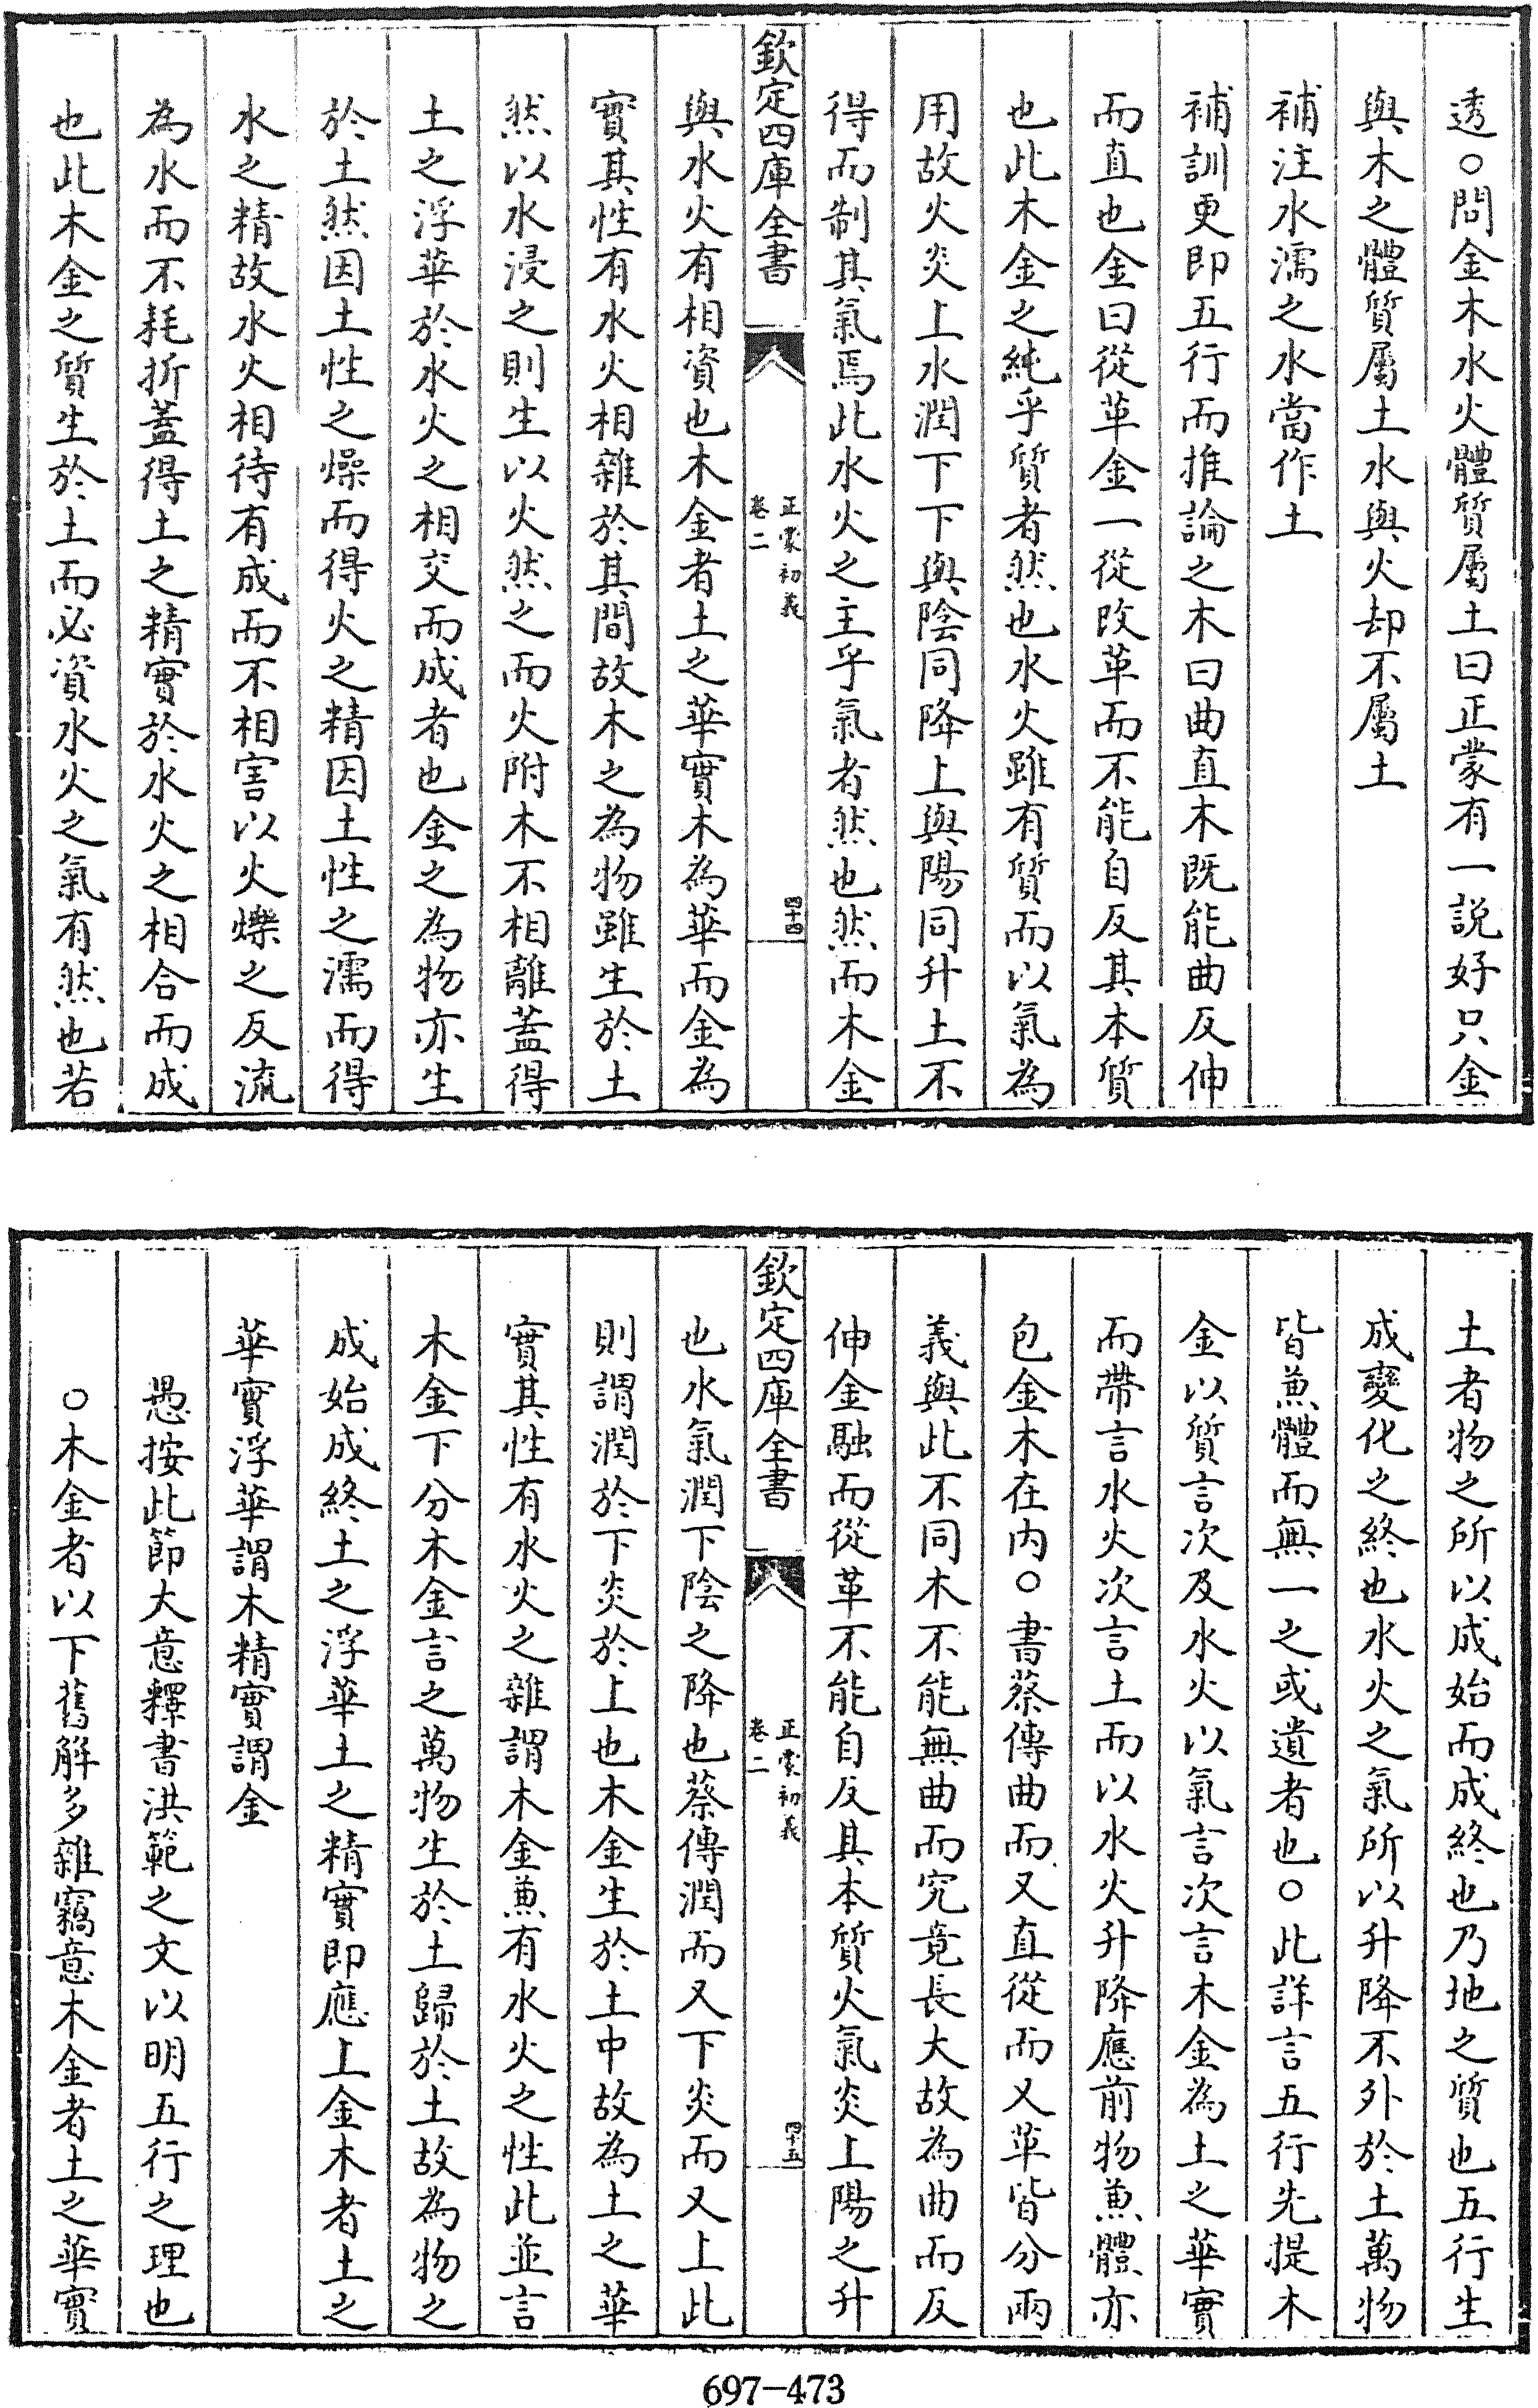 透○問金木水火體質屬土曰正蒙有一説好只金
與木之體質屬土水與火却不屬土
補注水濡之水當作土
補訓更即五行而推論之木曰曲直木既能曲反伸
而直也金曰從革金一從改革而不能自反其本質
也此木金之純乎質者然也水火雖有質而以氣為
用故火炎上水潤下下與陰同降上與陽同升土不
得而制其氣焉此水火之主乎氣者然也然而木金
欽定四庫全書
正蒙初義
卷二
四十四
與水火有相資也木金者土之華實木為華而金為
實其性有水火相雜於其間故木之為物雖生於土
然以水浸之則生以火然之而火附木不相離蓋得
土之浮華於水火之相交而成者也金之為物亦生
於土然因土性之燥而得火之精因土性之濡而得
水之精故水火相待有成而不相害以火爍之反流
為水而不耗折蓋得土之精實於水火之相合而成
也此木金之質生於土而必資水火之氣有然也若
土者物之所以成始而成終也乃地之質也五行生
成變化之終也水火之氣所以升降不外於土萬物
皆兼體而無一之或遺者也○此詳言五行先提木
金以質言次及水火以氣言次言木金為土之華實
而帶言水火次言土而以水火升降應前物兼體亦
包金木在内○書蔡傳曲而又直從而又革皆分兩
義與此不同木不能無曲而究竟長大故為曲而反
伸金融而從革不能自反其本質火氣炎上陽之升
欽定四庫全書
正蒙初義
卷二
四十五
也水氣潤下陰之降也蔡傳潤而又下炎而又上此
則謂潤於下炎於上也木金生於土中故為土之華
實其性有水火之雜謂木金兼有水火之性此並言
木金下分木金言之萬物生於土歸於土故為物之
成始成終土之浮華土之精實即應上金木者土之
華實浮華謂木精實謂金
愚按此節大意釋書洪範之文以明五行之理也
○木金者以下舊解多雜竊意木金者土之華實
697-473